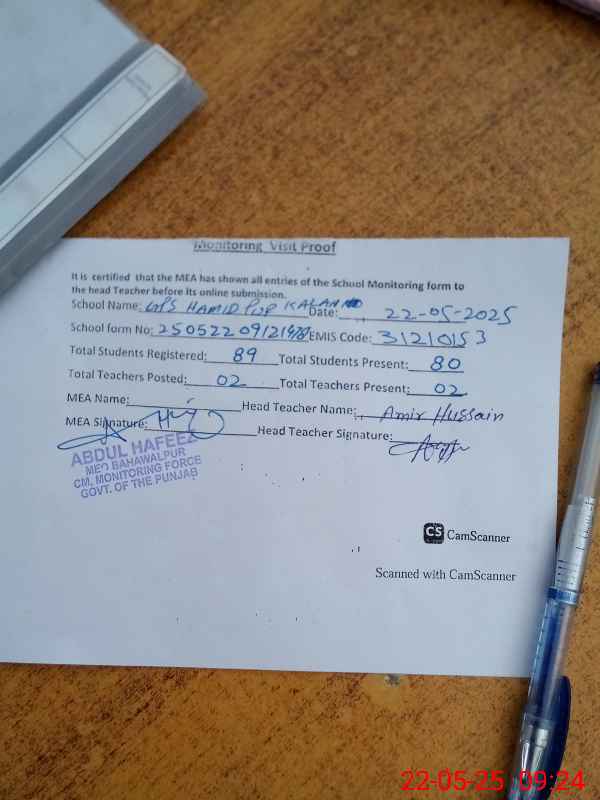 Monitoring Visit Proof
It is certified that the MEA has shown all entries of the School Monitoring form to
the head Teacher before its online submission.
School Name: GPS HAMID PUR KALAN Date: 22-05-2025
School form No: EMIS Code: 31210153
Total Students Registered: 89 Total Students Present: 80
Total Teachers Posted: 02 Total Teachers Present: 02
MEA Name: Head Teacher Name: Amir Hussain
MEA Signature: Head Teacher Signature:
ABDUL HAFEEZ
MEO BAHAWALPUR
CM. MONITORING FORCE
GOVT. OF THE PUNJAB
CS CamScanner
Scanned with CamScanner
22-05-25 09:24